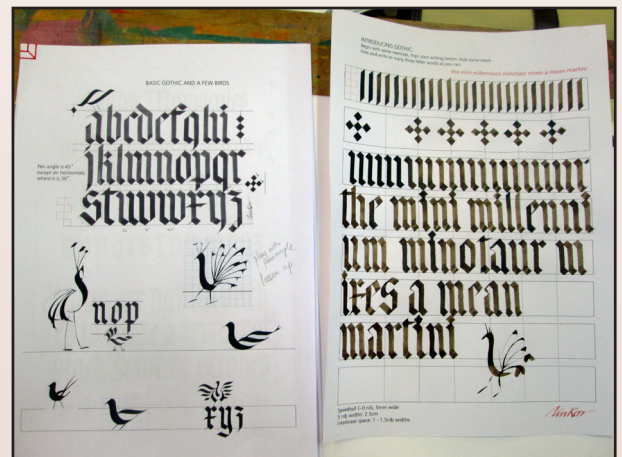 BASIC GOTHIC AND A FEW BIRDS
abcdefghi
jklmnopqr
stuvwxyz
Pen angle is 45°
except on horizontals,
where it is 30°.
play with
loosen up
nop
xyz
INTRODUCING GOTHIC:
Begin with some exercises, then start writing letters. Rule some more
lines and write as many three letter words as you can
the mini millennium minotaur mixes a mean martini
the mini millenni
um minotaur m
ixes a mean
martini
Speedball C-0 nib, 5mm wide
5 nib widths 2.5cm
Interlinear space: 1 - 1.5nib widths